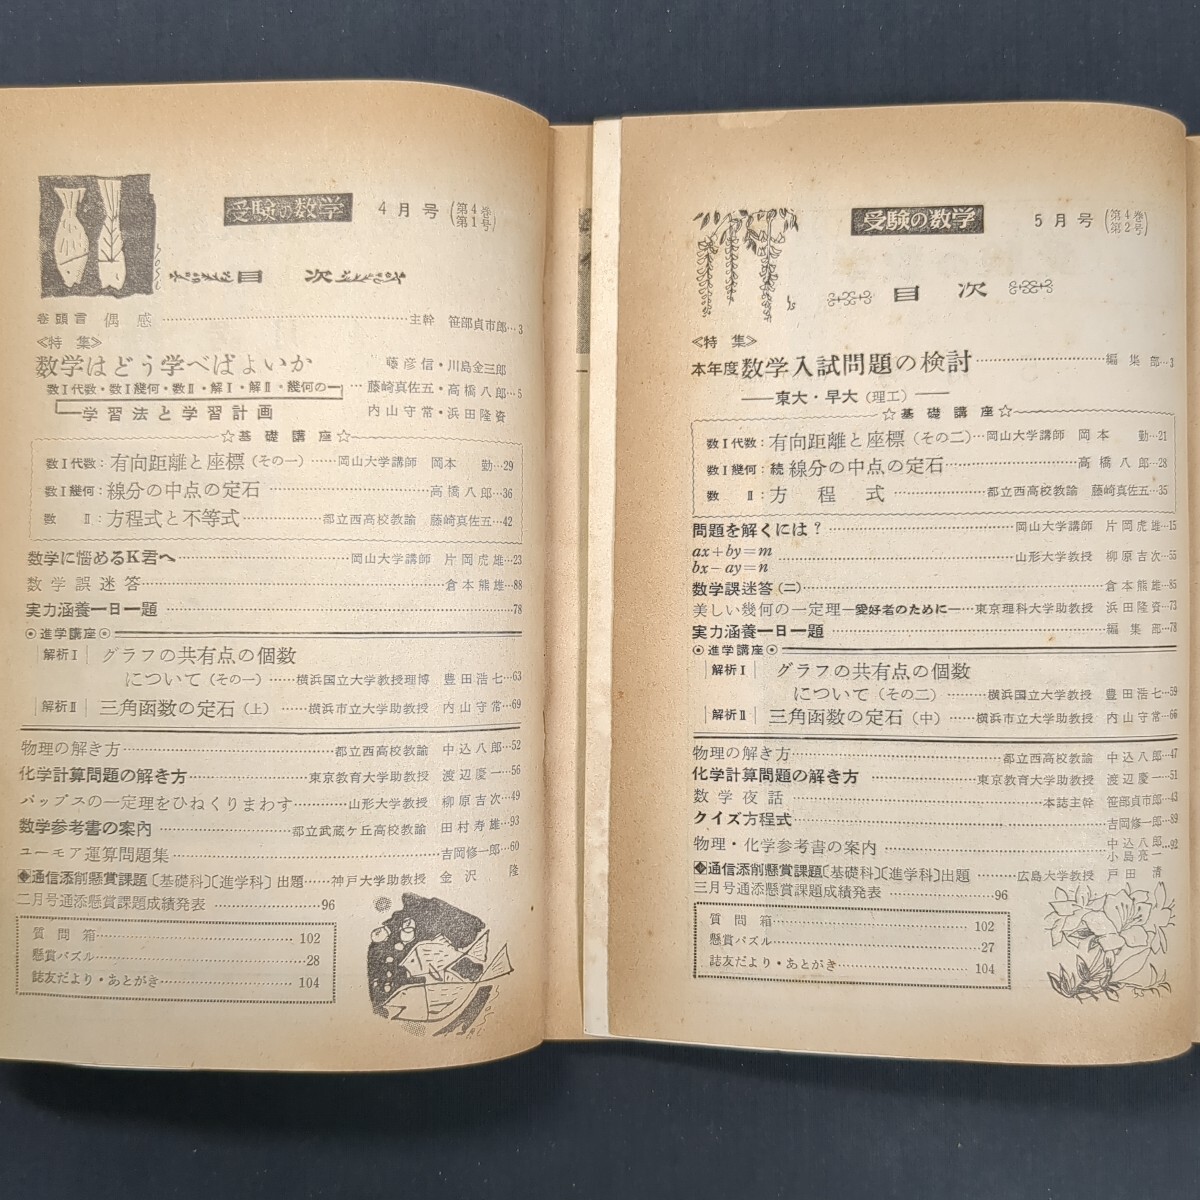 受験の数学 4月号(第4巻第1号)
目次
巻頭言 偶感………主幹 笹部貞市郎…3
≪特集≫
数学はどう学べばよいか 藤彦信・川島金三郎
数Ⅰ代数・数Ⅰ幾何・数Ⅱ・解Ⅰ・解Ⅱ・幾何の一 藤崎真佐五・高橋八郎…5
学習法と学習計画 内山守常・浜田隆資
☆基礎講座☆
数Ⅰ代数:有向距離と座標(その一)……岡山大学講師 岡本 勤…29
数Ⅰ幾何:線分の中点の定石………高橋八郎…36
数Ⅱ:方程式と不等式………都立西高校教諭 藤崎真佐五…42
数学に悩めるK君へ………岡山大学講師 片岡虎雄…23
数学誤迷答………倉本熊雄…88
実力涵養一日一題………78
◉進学講座◉
解析Ⅰ グラフの共有点の個数
について(その一)……横浜国立大学教授理博 豊田浩七…63
解析Ⅱ 三角函数の定石(上)……横浜市立大学助教授 内山守常…69
物理の解き方………都立西高校教諭 中込八郎…52
化学計算問題の解き方………東京教育大学助教授 渡辺慶一…56
パップスの一定理をひねくりまわす……山形大学教授 柳原吉次…49
数学参考書の案内………都立武蔵ケ丘高校教諭 田村寿雄…93
ユーモア運算問題集………吉岡修一郎…60
◆通信添削懸賞課題〔基礎科〕〔進学科〕出題……神戸大学助教授 金沢 隆
二月号通添懸賞課題成績発表………96
質問箱………102
懸賞パズル………28
誌友だより・あとがき………104
受験の数学 5月号(第4巻第2号)
目次
≪特集≫
本年度数学入試問題の検討………編集部…3
──東大・早大(理工)──
☆基礎講座☆
数Ⅰ代数:有向距離と座標(その二)…岡山大学講師 岡本 勤…21
数Ⅰ幾何:続線分の中点の定石………高橋八郎…28
数Ⅱ:方程式………都立西高校教諭 藤崎真佐五…35
問題を解くには?………岡山大学講師 片岡虎雄…15
ax+by=m
bx-ay=n………山形大学教授 柳原吉次…55
数学誤迷答(二)………倉本熊雄…85
美しい幾何の一定理―愛好者のために―…東京理科大学助教授 浜田隆資…73
実力涵養一日一題………編集部…78
◉進学講座◉
解析Ⅰ グラフの共有点の個数
について(その二)………横浜国立大学教授 豊田浩七…59
解析Ⅱ 三角函数の定石(中)……横浜市立大学助教授 内山守常…66
物理の解き方………都立西高校教諭 中込八郎…47
化学計算問題の解き方………東京教育大学助教授 渡辺慶一…51
数学夜話………本誌主幹 笹部貞市郎…43
クイズ方程式………吉岡修一郎…89
物理・化学参考書の案内………中込八郎 小島亮一…92
◆通信添削懸賞課題〔基礎科〕〔進学科〕出題……広島大学教授 戸田 清
三月号通添懸賞課題成績発表………96
質問箱………102
懸賞パズル………27
誌友だより・あとがき………104